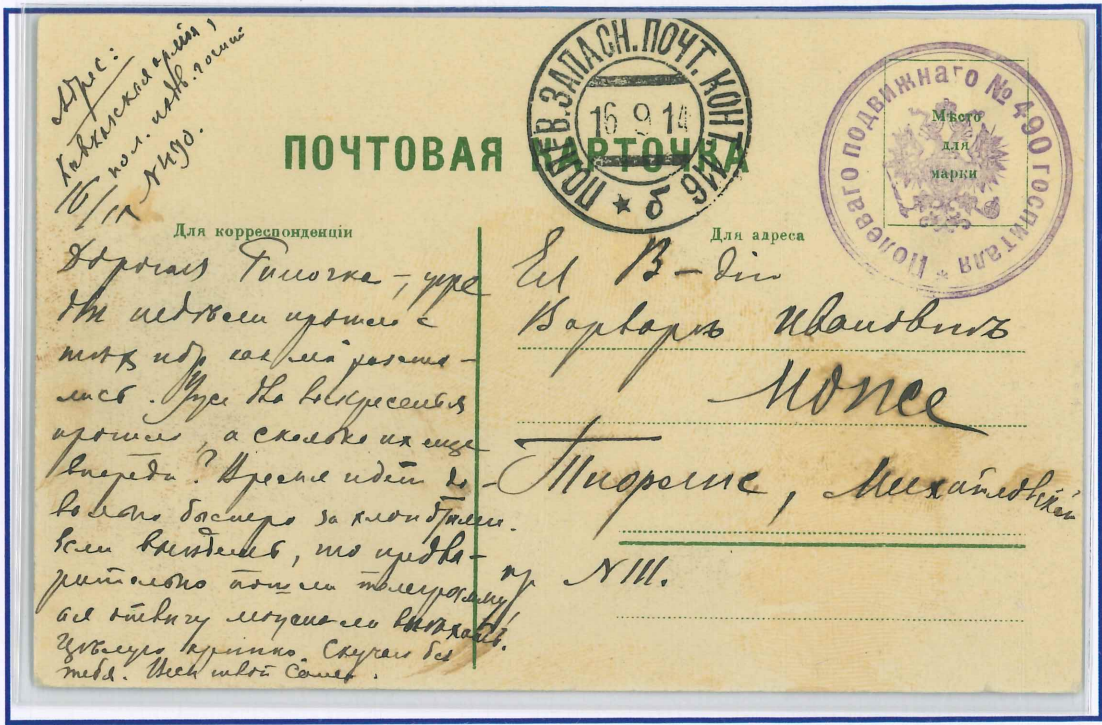 Адрес:
Кавказская армія,
пол. подв. госпит.
№ 490.
16/IX
ПОЧТОВАЯ КАРТОЧКА
ПОЛЕВ. ЗАПАСН. ПОЧТ. КОНТ. 116
16 9 14
б
Полеваго подвижнаго № 490 госпиталя
Мѣсто
для
марки
Для корреспонденціи
Для адреса
Дорогая
двѣ недѣли прошло с
как мы расста-
лись. Уже два воскресенья
прошло, а сколько их еще
впереди? Время идет до-
вольно быстро за хлопотами.
Если выѣдешь, то предва-
рительно пошли телеграмму,
а я отвѣчу можно ли выѣхать.
Цѣлую крѣпко. Скучаю без
тебя. твой
Ея В-дію
Варварѣ Ивановнѣ
Тифлис, Михайловскій
пр №